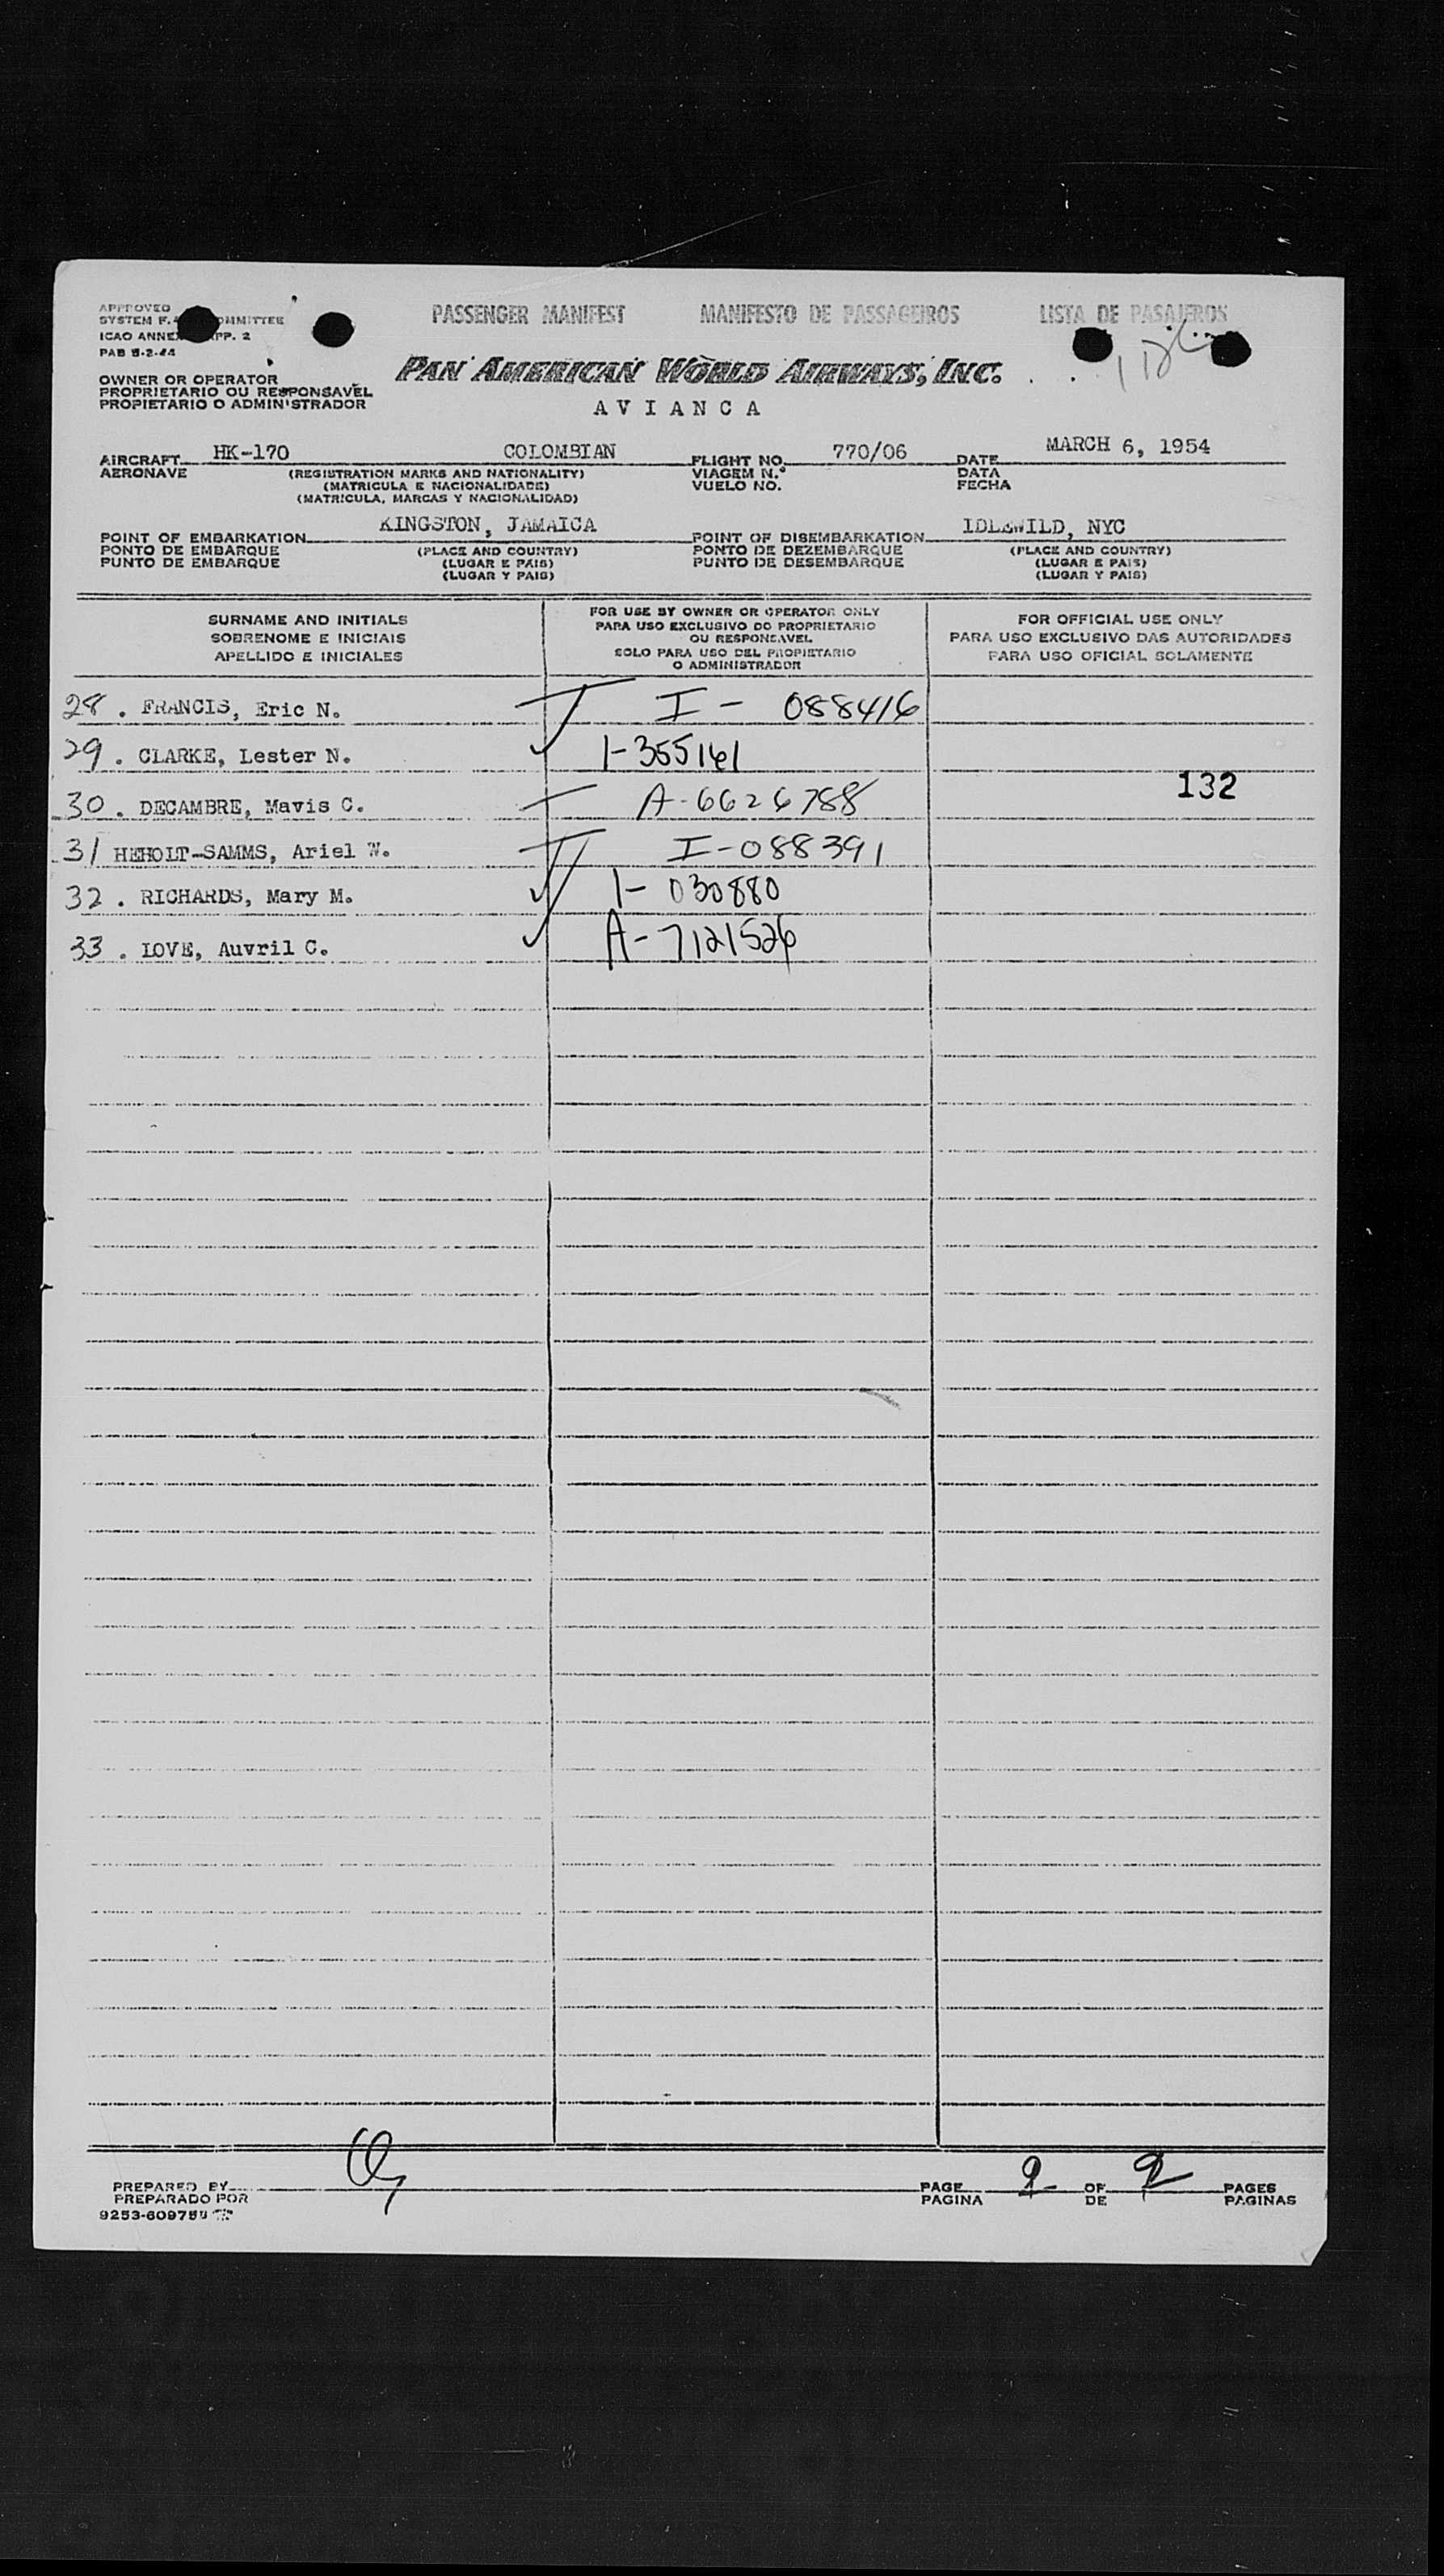 PASSENGER MANIFEST MANIFESTO DE PASSAGEIROS LISTA DE PASAJEROS
APPROVED
SYSTEM F. COMMITTEE
ICAO ANNEX APP. 2
PAB 5-2-44
OWNER OR OPERATOR
PROPRIETARIO OU RESPONSAVEL
PROPIETARIO O ADMINISTRADOR
PAN AMERICAN WORLD AIRWAYS, INC.
AVIANCA
AIRCRAFT HK-170 COLOMBIAN FLIGHT NO. 770/06 DATE MARCH 6, 1954
AERONAVE (REGISTRATION MARKS AND NATIONALITY) VIAGEM N.º DATA
(MATRICULA E NACIONALIDADE) VUELO NO. FECHA
(MATRICULA, MARCAS Y NACIONALIDAD)
POINT OF EMBARKATION KINGSTON, JAMAICA POINT OF DISEMBARKATION IDLEWILD, NYC
PONTO DE EMBARQUE (PLACE AND COUNTRY) PONTO DE DEZEMBARQUE (PLACE AND COUNTRY)
PUNTO DE EMBARQUE (LUGAR E PAIS) PUNTO DE DESEMBARQUE (LUGAR E PAIS)
(LUGAR Y PAIS) (LUGAR Y PAIS)
SURNAME AND INITIALS
SOBRENOME E INICIAIS
APELLIDO E INICIALES
FOR USE BY OWNER OR OPERATOR ONLY
PARA USO EXCLUSIVO DO PROPRIETARIO
OU RESPONSAVEL
SOLO PARA USO DEL PROPIETARIO
O ADMINISTRADOR
FOR OFFICIAL USE ONLY
PARA USO EXCLUSIVO DAS AUTORIDADES
PARA USO OFICIAL SOLAMENTE
28. FRANCIS, Eric N. I - 088416
29. CLARKE, Lester N. I-355161
30. DECAMBRE, Mavis C. A-6626788 132
31 HEHOLT-SAMMS, Ariel W. I-088391
32. RICHARDS, Mary M. I- 030880
33. LOVE, Auvril C. A-7121526
PREPARED BY PAGE 2 OF 2 PAGES
PREPARADO POR PAGINA DE PAGINAS